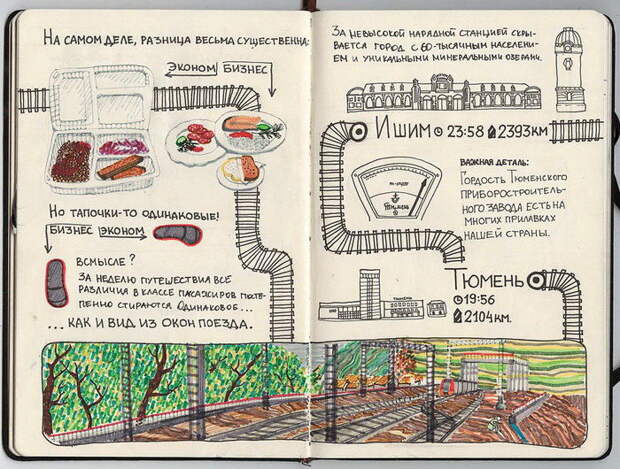 На самом деле, разница весьма существенна:
эконом бизнес
Но тапочки-то одинаковые!
бизнес эконом
всмысле?
За неделю путешествия все
различия в классе пасажиров посте-
пенно стираются. Одинаковое...
... как и вид из окон поезда.
За невысокой нарядной станцией скры-
вается город с 60-тысячным населени-
ем и уникальными минеральными озерами.
Ишим 23:58 2393км
Важная деталь:
Гордость Тюменского
приборостроитель-
ного завода есть на
многих прилавках
нашей страны.
Тюмень
Тюмень
19:56
2104км.